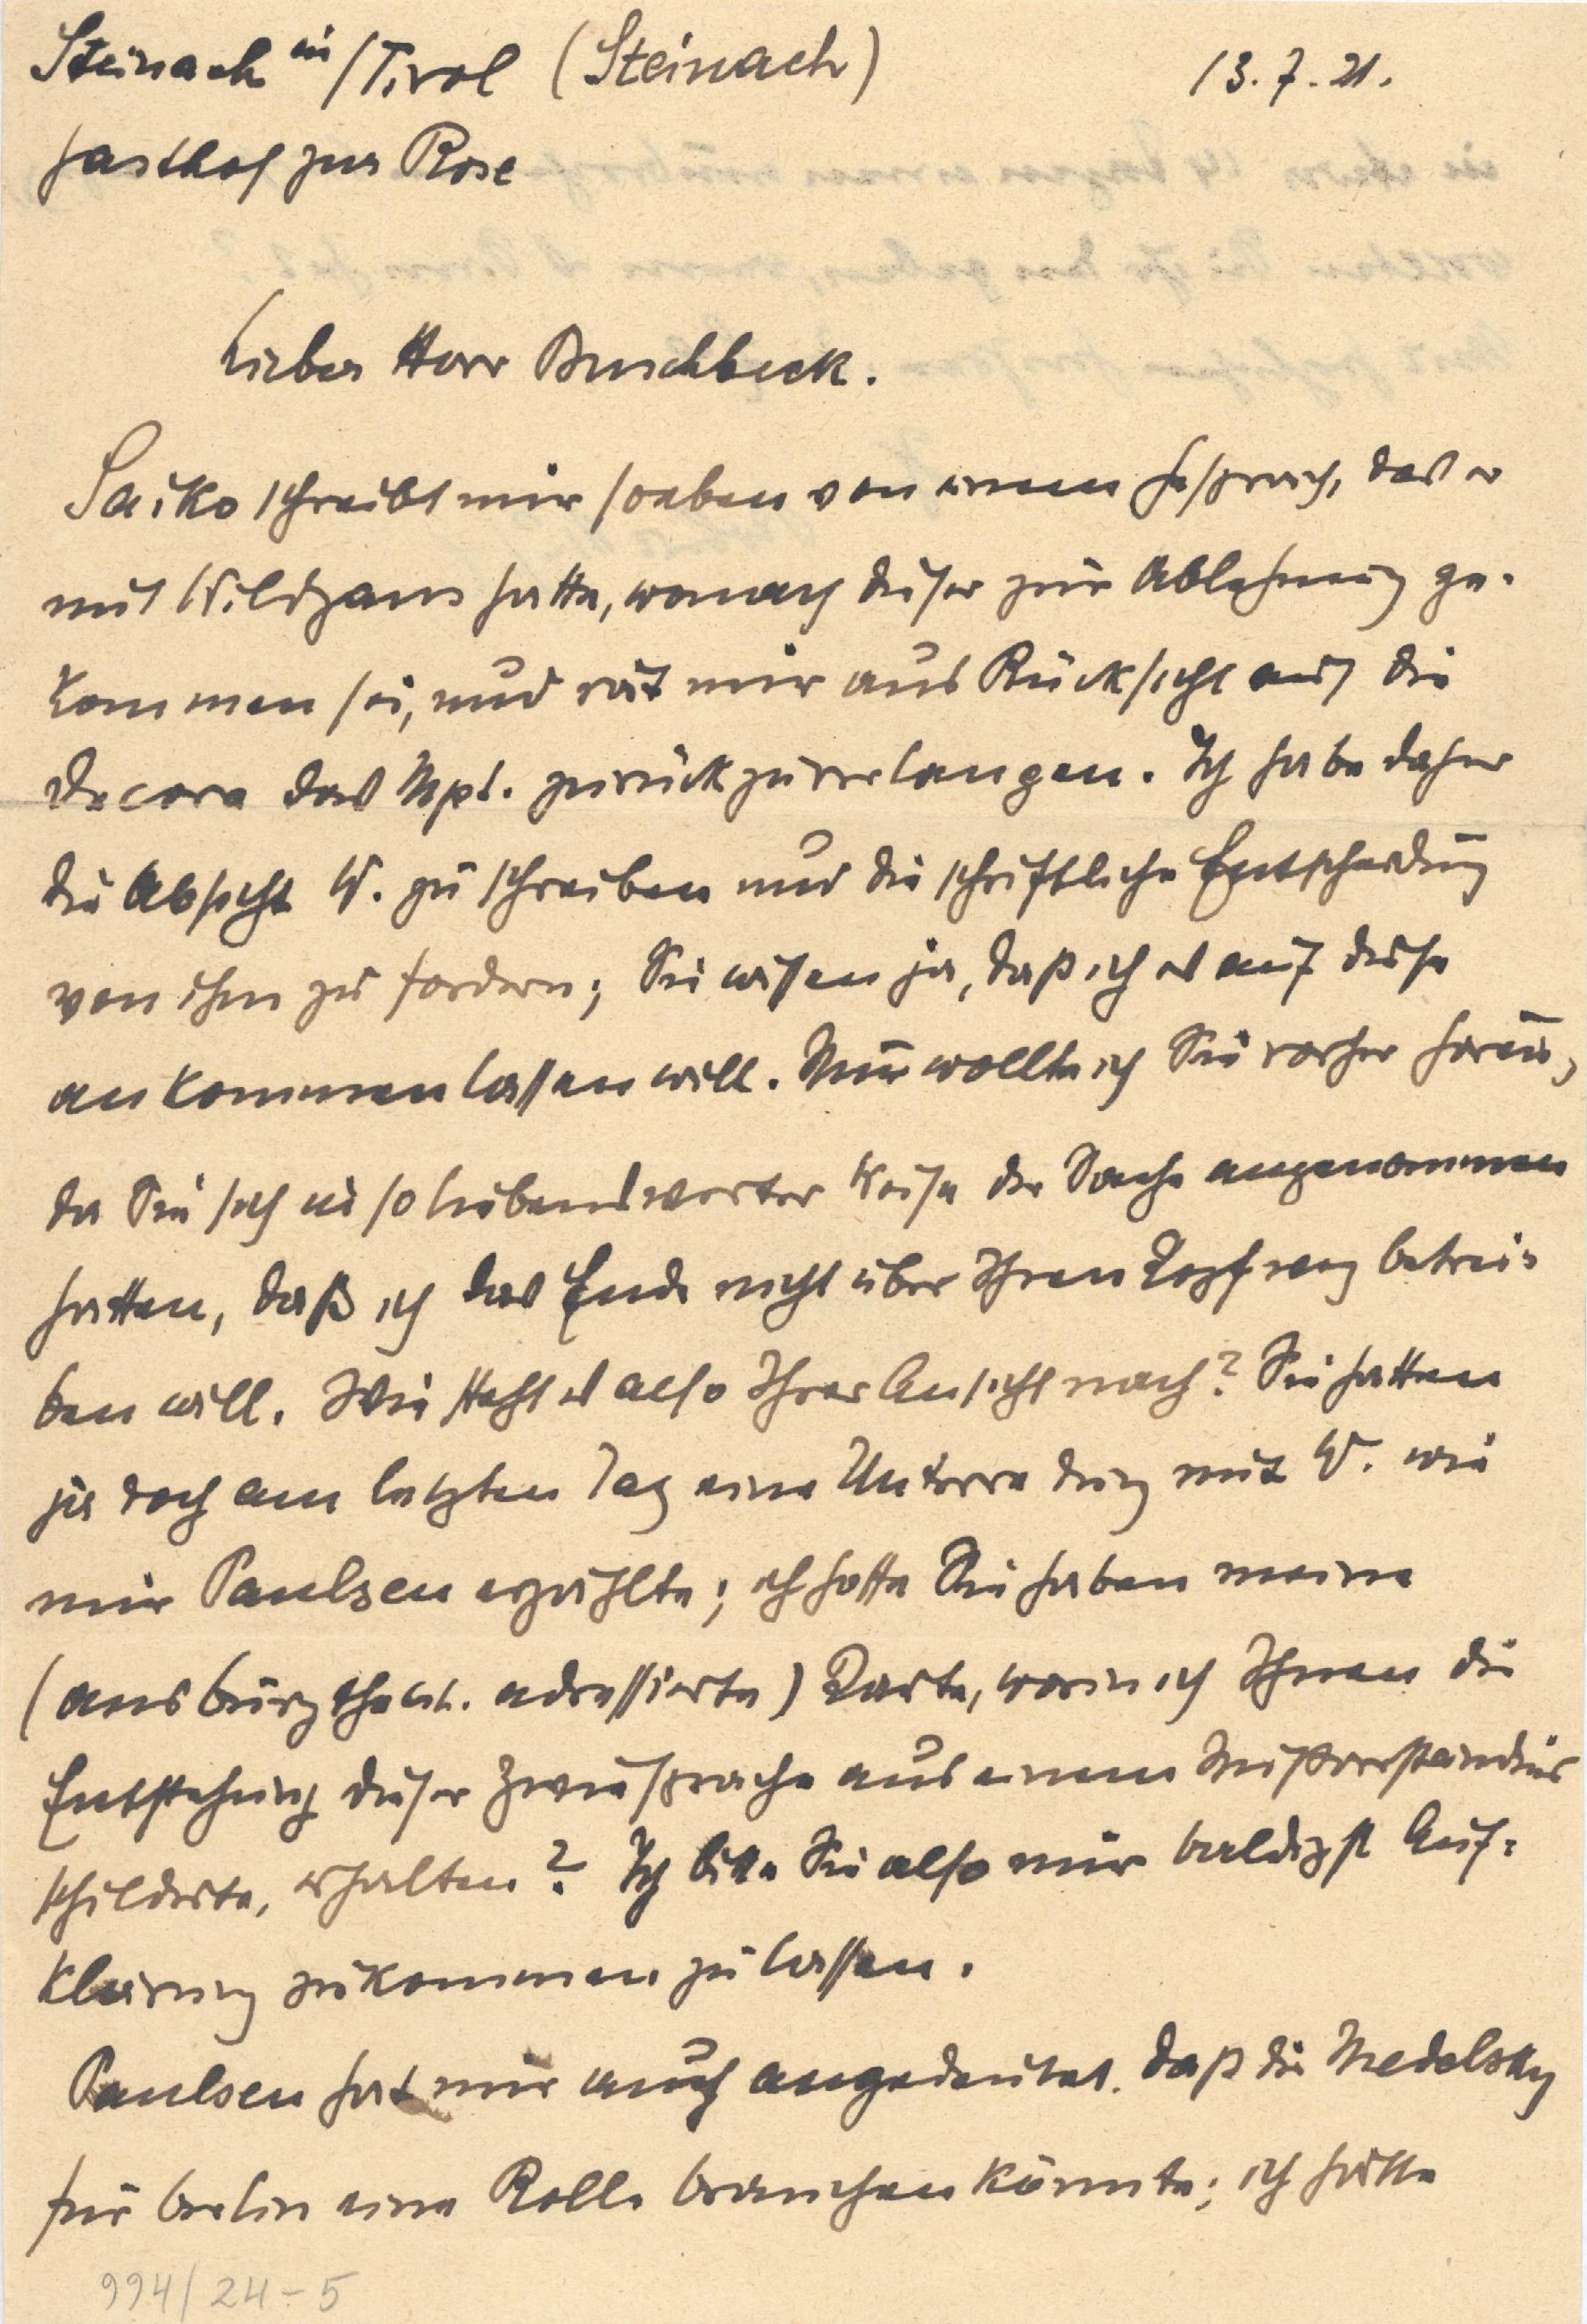 Steinach in /Tirol (Steinach) 13.7.21.
Gasthof zur Rose
Lieber Herr Buschbeck.
Saiko schreibt mir soeben von einem Gespräch, das er
mit Wildgans hatte, wonach dieser zur Ablehnung ge-
kommen sei, und rät mir aus Rücksicht auf die
Decora das Mpt. zurückzuverlangen. Ich habe daher
die Absicht W. zu schreiben und die schriftliche Entscheidung
von ihm zu fordern; Sie wissen ja, daß ich es auf diese
ankommen lassen will. Nur wollte ich Sie vorher hören,
da Sie sich in so liebenswerter Weise der Sache angenommen
hatten, daß ich das Ende nicht über Ihren Kopf weg betrei-
ben will. Wie steht es also Ihrer Ansicht nach? Sie hatten
ja doch am letzten Tag eine Unterredung mit W. wie
mir Paulsen erzählte; ich hoffe Sie haben meine
(ans Burgtheat. adressierte) Karte, worin ich Ihnen die
Entstehung dieser Zwiesprache aus einem Mißverständnis
schilderte, erhalten? Ich bitte Sie also mir baldigst Auf-
klärung zukommen zu lassen.
Paulsen hat mir auch angedeutet, daß die Medelsky
für Berlin eine Rolle brauchen könnte; ich hätte
994/24-5